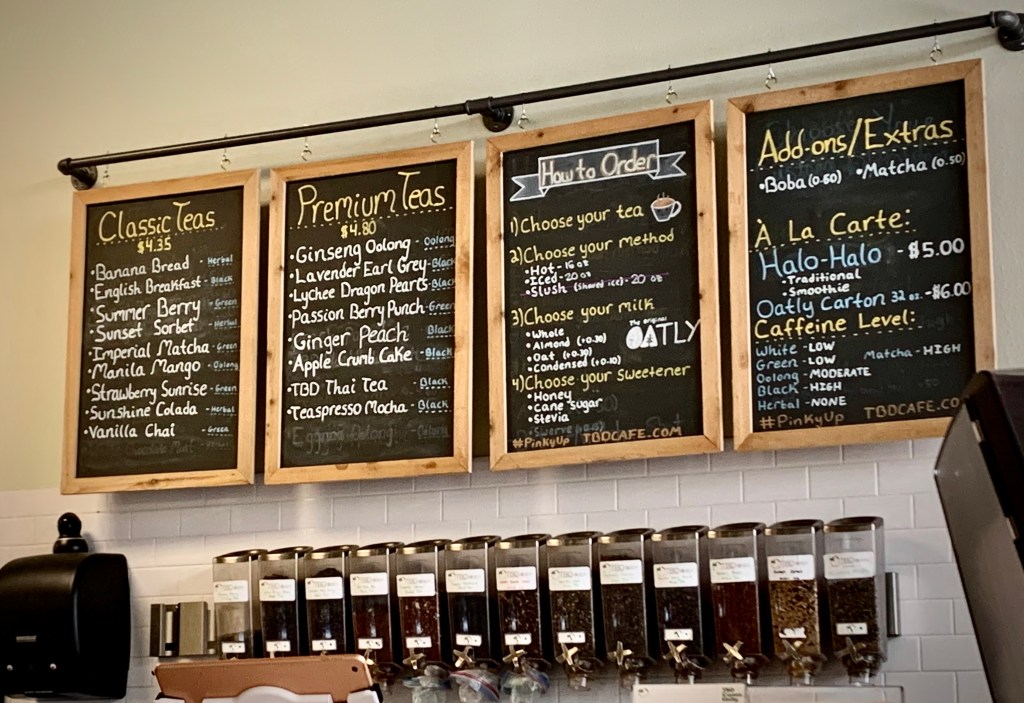 Classic Teas
$4.35
•Banana Bread - Herbal
•English Breakfast - Black
•Summer Berry - Green
•Sunset Sorbet - Herbal
•Imperial Matcha - Green
•Manila Mango - Oolong
•Strawberry Sunrise - Green
•Sunshine Colada - Herbal
•Vanilla Chai - Green
Premium Teas
$4.80
•Ginseng Oolong - Oolong
•Lavender Earl Grey - Black
•Lychee Dragon Pearls - Black
•Passion Berry Punch - Green
•Ginger Peach Black
•Apple Crumb Cake - Black
•TBD Thai Tea - Black
•Teaspresso Mocha - Black
Eggnog Oolong
How to Order
1)Choose your tea
2)Choose your method
•Hot - 16 oz
•Iced - 20 oz
•Slush (shaved ice) - 20 oz
3)Choose your milk
•Whole
•Almond (+0.30)
•Oat (+0.30)
•Condensed (+0.10)
The original
OATLY
4)Choose your sweetener
•Honey
•Cane Sugar
•Stevia
•Swerve
#PinkyUp TBDCAFE.COM
Add-ons/Extras
•Boba (0.60) •Matcha (0.50)
À La Carte:
Halo-Halo - $5.00
-Traditional
-Smoothie
Oatly Carton 32 oz. - $6.00
Caffeine Level:
White - LOW
Green - LOW Matcha - HIGH
Oolong - MODERATE
Black - HIGH
Herbal - NONE
#PinkyUp TBDCAFE.CO